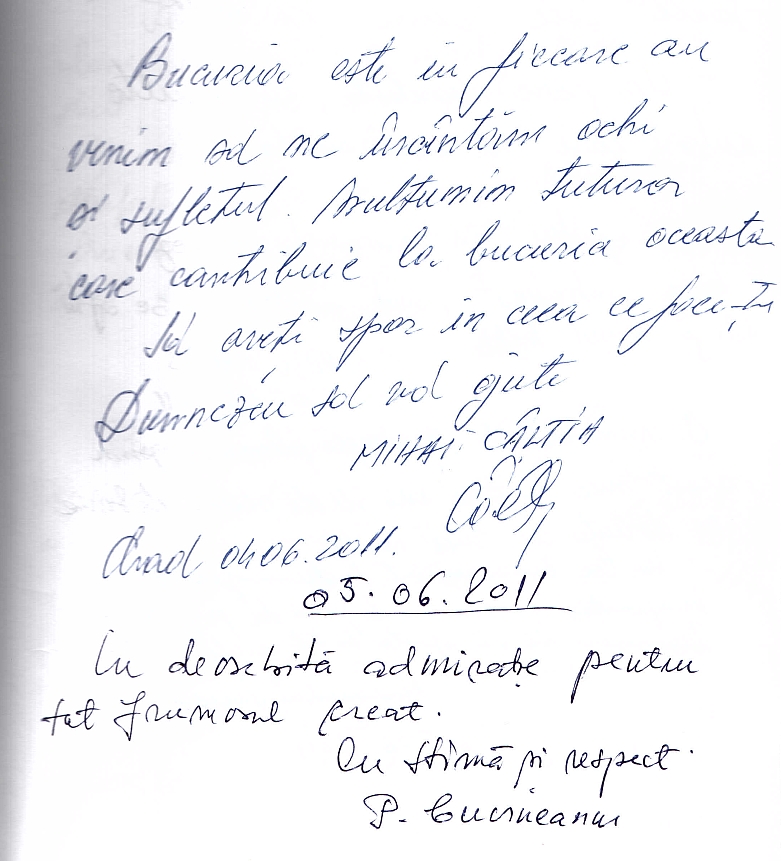 Bucuria este în fiecare an
venim să ne încântăm ochi
și sufletul. Mulțumim tuturor
care contribuie la bucuria aceasta
Să aveți spor in ceea ce faceți
Dumnezeu să vă ajute
MIHAI CÂLȚIA
Arad 04 06.2011.
05.06.2011
Cu deosebită admirație pentru
tot frumosul creat.
Cu stimă și respect
P.